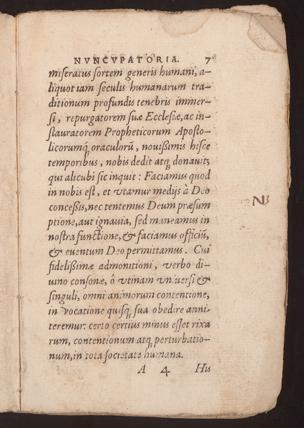 NVNCVPATORIA. 7
miseratus sortem generis humani, a-
liquot iam seculis humanarum tra-
ditionum profundis tenebris immer-
si, repurgatorem suæ Ecclesiæ, ac in-
stauratorem Propheticorum Aposto-
licorumq́ oraculorũ, nouißimis hisce
temporibus, nobis dedit atq́ donauit,
qui alicubi sic inquit: Faciamus quod
in nobis est, et vtamur medijs à Deo
conceßis, nec tentemus Deum præsum
ptione, aut ignauia, sed maneamus in
nostra functione, & faciamus officiũ,
& euentum Deo permittamus. Cui
fidelißimæ admonitioni, verbo di-
uino consonæ, ô vtinam vniuersi &
singuli, omni animorum contentione,
in vocatione quisq́ sua obedire anni-
teremur: certo certius minus esset rixa
rum, contentionum atq́ perturbatio-
num, in tota societate humana.
A 4 His